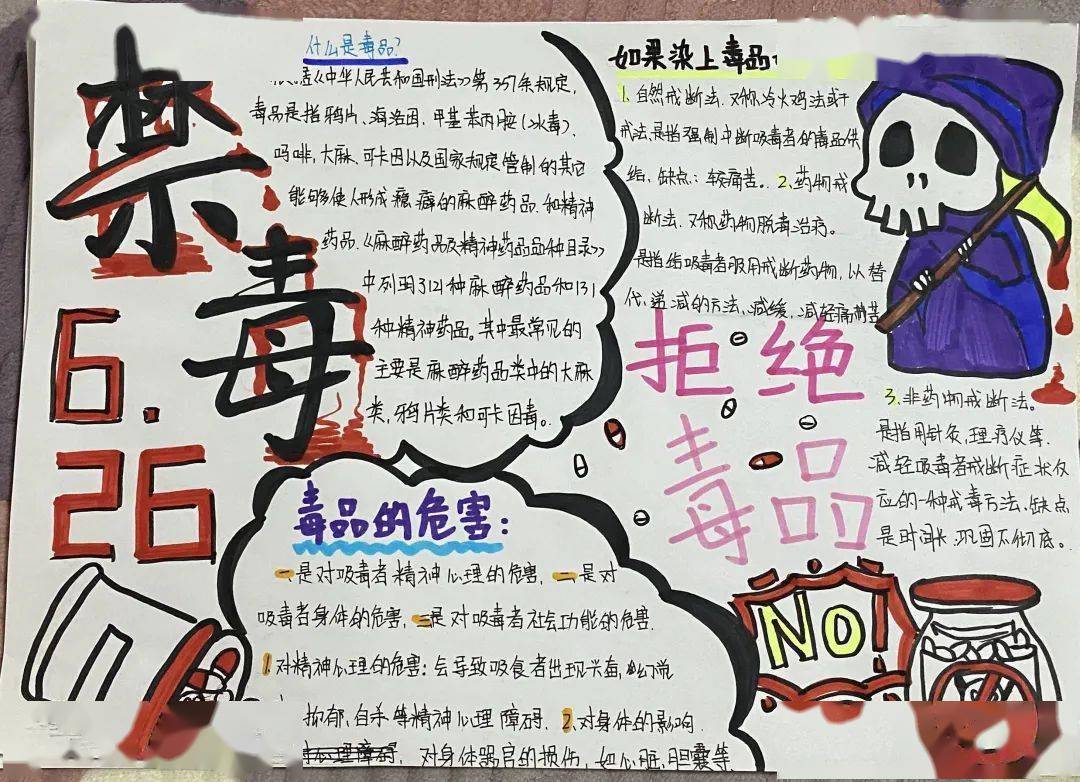 禁毒
6.26
什么是毒品?
《中华人民共和国刑法》第357条规定,
毒品是指鸦片、海洛因、甲基苯丙胺(冰毒)、
吗啡,大麻、可卡因以及国家规定管制的其它
能够使人形成瘾癖的麻醉药品.和精神
药品.《麻醉药品及精神药品品种目录》
中列明了121种麻醉药品和131
种精神药品。其中最常见的
主要是麻醉药品类中的大麻
类,鸦片类和可卡因毒。
如果染上毒品
1、自然戒断法、又称冷火鸡法或干
戒法、是指强制中断吸毒者的毒品供
给、缺点:较痛苦。2、药物戒
断法、又称药物脱毒治疗。
是指给吸毒者服用戒断药物,以替
代、递减的方法、减缓、减轻痛苦
3、非药物戒断法。
是指用针灸、理疗仪等.
减轻吸毒者戒断症状反
应的一种戒毒方法、缺点
是时间长、巩固不彻底。
拒绝
毒品
毒品的危害:
一是对吸毒者精神心理的危害,二是对
吸毒者身体的危害,三是对吸毒者社会功能的危害.
1.对精神心理的危害:会导致吸食者出现兴奋,
抑郁、自杀等精神心理障碍、2、对身体的影响.
对身体器官的损伤,如心脏,胆囊等
No!